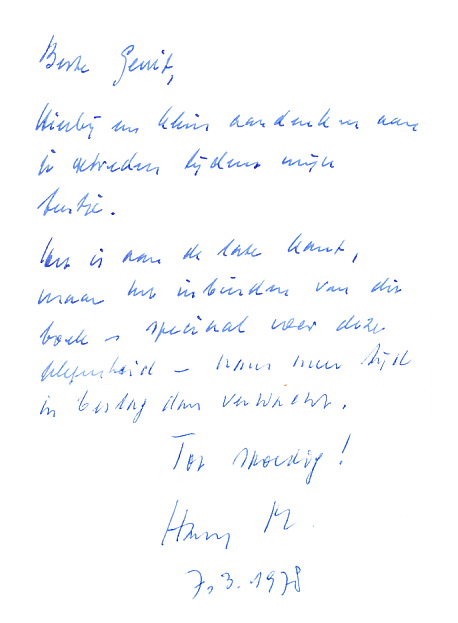 Beste Gerrit,
Hierbij een klein aandenken aan
je optreden tijdens mijn
feestje.
Het is aan de late kant,
maar het inbinden van dit
boek - speciaal voor deze
gelegenheid - nam meer tijd
in beslag dan verwacht.
Tot spoedig!
Harry M.
7.3.1978